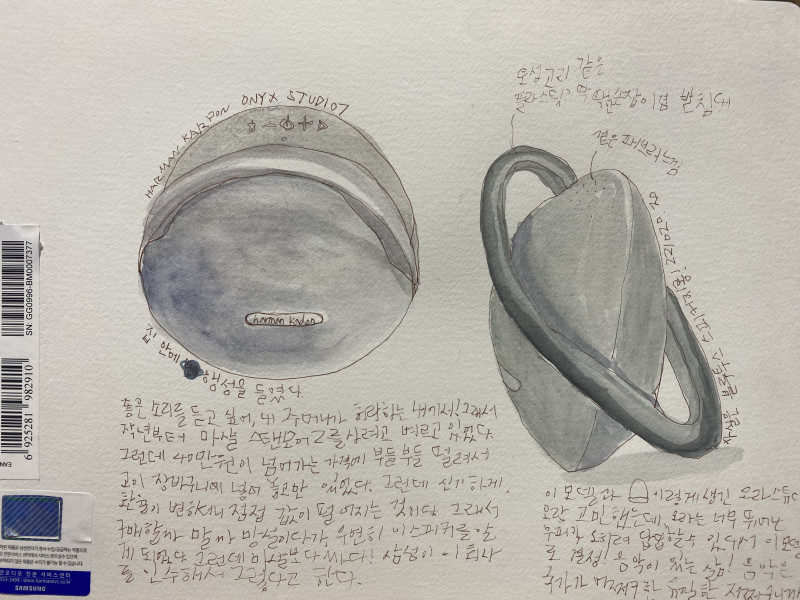 HARMAN KARDON ONYX STUDIO 7
harman kardon
집 안에 행성을 들였다.
좋은 소리를 듣고 싶어, 내 주머니가 허락하는 내에서! 그래서
작년부터 마샬 스탠모어2를 사려고 벼르고 있었다.
그런데 40만원이 넘어가는 가격에 부들부들 떨려서
고이 장바구니에 넣어 놓고만 있었다. 그런데 신기하게,
변하니 점점 값이 떨어지는 것이다. 그래서
구매할까 말까 하다가, 우연히 이 스피커를 알
게 되었다. 그런데 마샬보다 싸다! 삼성이 이 회사
를 인수해서 그렇다고 한다.
토성고리 같은
플라스틱가 딱 손잡이겸 받침대
겉은 패브릭느낌
사실은 블루투스 스피커지만
이 모델과 이렇게 생긴 오라스튜디
오랑 고민했는데, 오라는 너무 뛰어난
우퍼가 오히려 답답할 수 있대서 이 모델
로 결정! 음악이 있는 삶! 음악은
국가가 허락한 유일한
SN: GG0996-BM0007377
6 925281 982910
EAN
오디오 전문 서비스센터
www.harmanav.co.kr
SAMSUNG